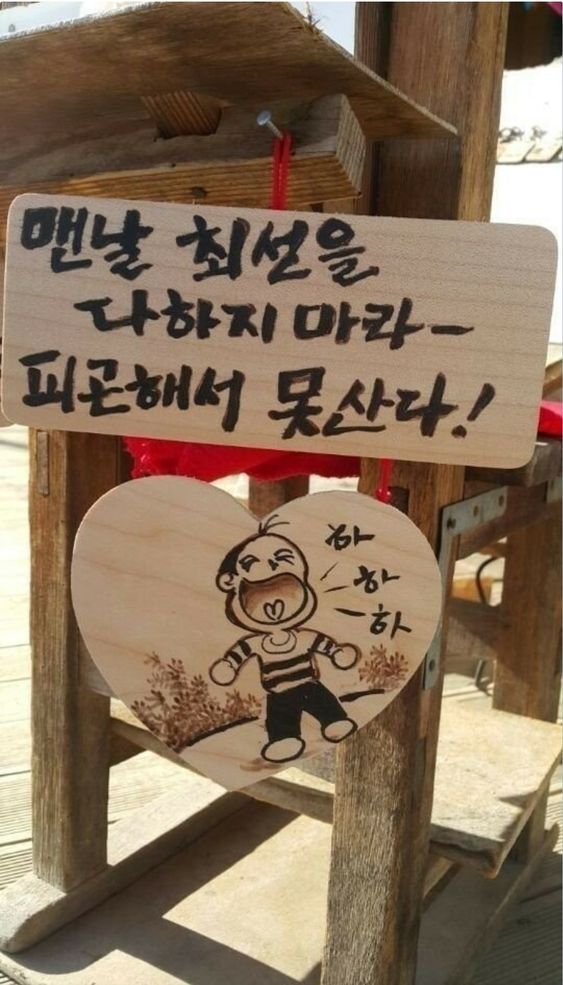 맨날 최선을
다하지 마라-
피곤해서 못산다!
하
하
하